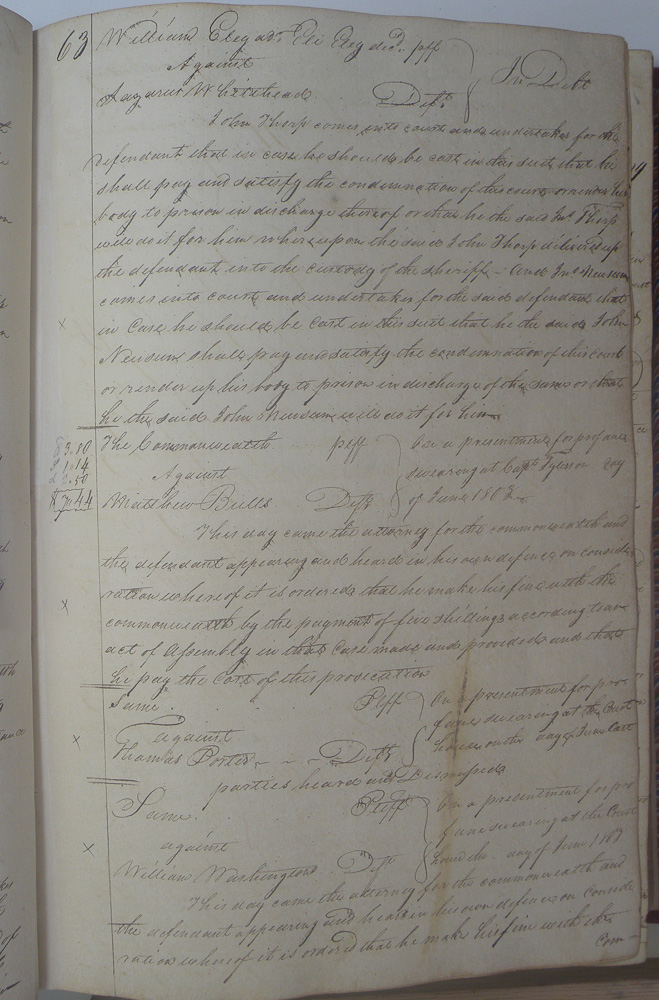 63 William Cleg adr. Eli Cleg decd. plff
Against
In Debt
Lazarus Whitehead Deft
John Thorp comes into court and undertakes for the
defendant that in case he should be cast in this suit that he
shall pay and satisfy the condemnation of this court or render his
body to prison in discharge thereof or that he the said Jno. Thorp
will do it for him whereupon the said John Thorp delivers up
the defendant into the custody of the sheriff - And Jno Newsum
comes into court and undertakes for the said defendant that
x
in Case he should be cast in this suit that he the said John
Newsum shall pay and satisfy the condemnation of this court
or render up his body to prison in discharge of the same or that
he the said John Newsum will do it for him
The Commonwealth plff
On a presentment for profane
3.80
1.14
2.50
$7.44
Against
swearing at Capt day
Matthew Bulls Deft
of June 180
This day came the attorney for the commonwealth and
the defendant appearing and heard in his own defence on conside
ration whereof it is ordered that he make his fine with the
x
commonwealth by the payment of five shillings according to an
act of Assembly in that Case made and provided and that
he pay the Cost of this prosecution
Same Plff
On a presentment for pro-
fane swearing at the Court
against
x
house on the day of June last
Thomas Porter Deft
parties heard and Dismissed
Same Plff
On a presentment for pro
fane swearing at the Court
against
x
day of June 180
William Washington Deft
This day came the attorney for the commonwealth and
the defendant appearing and heard in his own defence on conside
ration whereof it is ordered that he make his fine with the
Com-